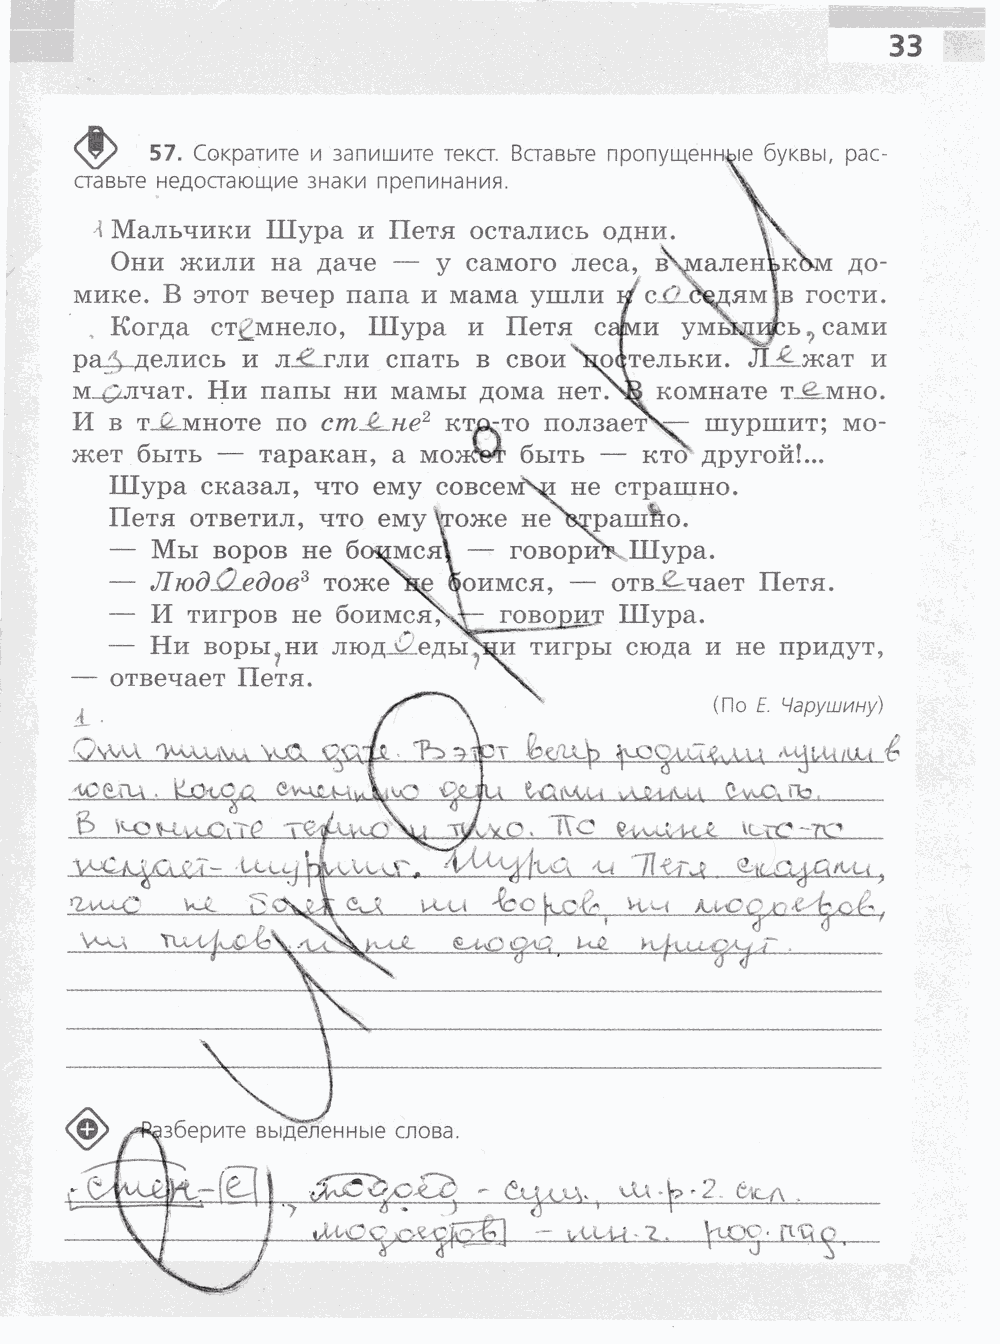 33
57. Сократите и запишите текст. Вставьте пропущенные буквы, рас-
ставьте недостающие знаки препинания.
1 Мальчики Шура и Петя остались одни.
Они жили на даче — у самого леса, в маленьком до-
мике. В этот вечер папа и мама ушли к соседям в гости.
Когда стемнело, Шура и Петя сами умылись, сами
разделись и легли спать в свои постельки. Лежат и
молчат. Ни папы ни мамы дома нет. В комнате темно.
И в темноте по стене² кто-то ползает — шуршит; мо-
жет быть — таракан, а может быть — кто другой!...
Шура сказал, что ему совсем и не страшно.
Петя ответил, что ему тоже не страшно.
— Мы воров не боимся, — говорит Шура.
— Людоедов³ тоже не боимся, — отвечает Петя.
— И тигров не боимся, — говорит Шура.
— Ни воры, ни людоеды, ни тигры сюда и не придут,
— отвечает Петя.
(По Е. Чарушину)
1.
Они жили на даче. В этот вечер родители ушли в
гости. Когда стемнело дети сами легли спать.
В комнате темно и тихо. По стене кто-то
ползает - шуршит. Шура и Петя сказали,
что не боятся ни воров, ни людоедов,
ни тигров и те сюда не придут.
Разберите выделенные слова.
стен-е, людоед - сущ., м.р. 2 скл.
людоедов - мн.ч. род. пад.